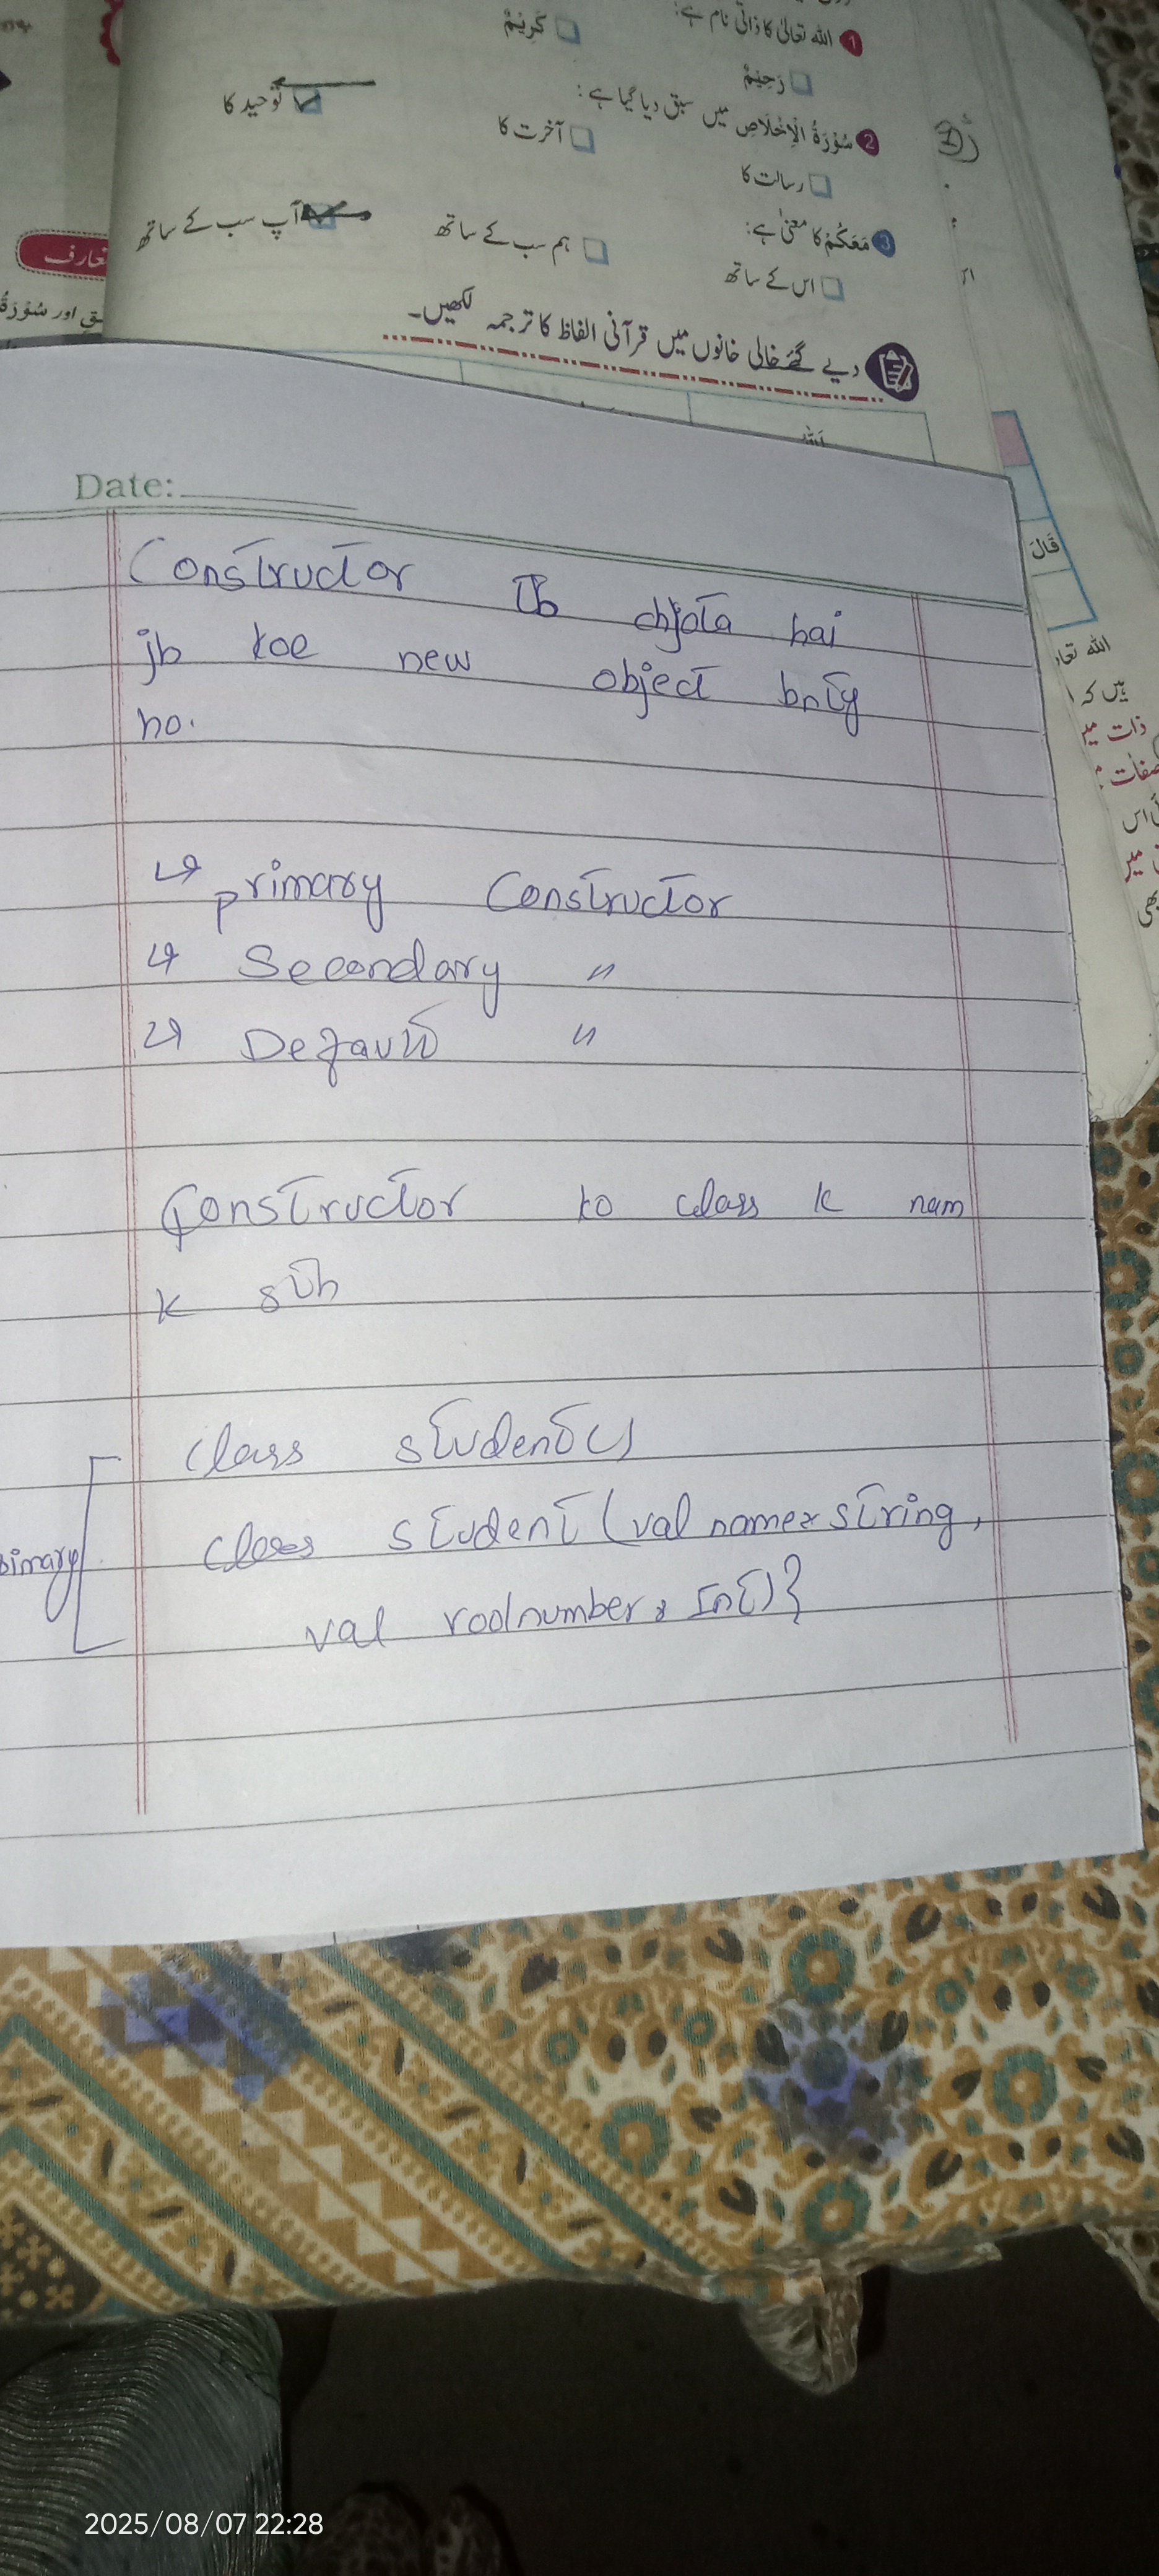 1 اللہ تعالیٰ کا ذاتی نام ہے:
رَحِیْمٌ
کَرِیْمٌ
2 سُوْرَۃُ الْاِخْلَاصِ میں سبق دیا گیا ہے:
رسالت کا
آخرت کا
توحید کا
3 مَعَکُمْ کا معنیٰ ہے:
اس کے ساتھ
ہم سب کے ساتھ
آپ سب کے ساتھ
دیے گئے خالی خانوں میں قرآنی الفاظ کا ترجمہ لکھیں۔
قَالَ
الله تعا
ہیں کہ
ذات میں
Date:
Constructor Tb chjata hai
jb koe new object bnty
ho.
↳ primary Constructor
↳ Secondary "
↳ Default "
Constructor ko class k nam
k sth
class student()
class student (val name: string,
val roolnumber: Int) }
2025/08/07 22:28